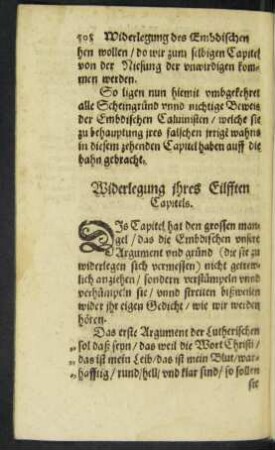 508 Widerlegung des Embdischen
hen wollen / do wir zum selbigen Capitel
von der Niesung der vnwirdigen kom-
men werden.
So ligen nun hiemit vmbgekehret
alle Scheingründ vnnd nichtige Beweis
der Embdischen Caluinisten / welche sie
zu behauptung jres falschen jrrigē wahns
in diesem zehenden Capitul haben auff die
bahn gebracht.
Widerlegung ihres Eilfften
Capitels.
DIs Capitel hat den grossen man-
gel / das die Embdischen vnsere
Argument vnd gründ (die sie zu
widerlegen sich vermessen) nicht getrew-
lich anziehen / sondern verstümpeln vnnd
verhümpeln sie / vnnd streiten bißweilen
wider jhr eigen Gedicht / wie wir werden
hören.
Das erste Argument der Lutherischen
„ sol daß seyn / das weil die Wort Christi /
„ das ist mein Leib / das ist mein Blut / war-
„ hafftig / rund / hell / vnd klar sind / so sollen
sie